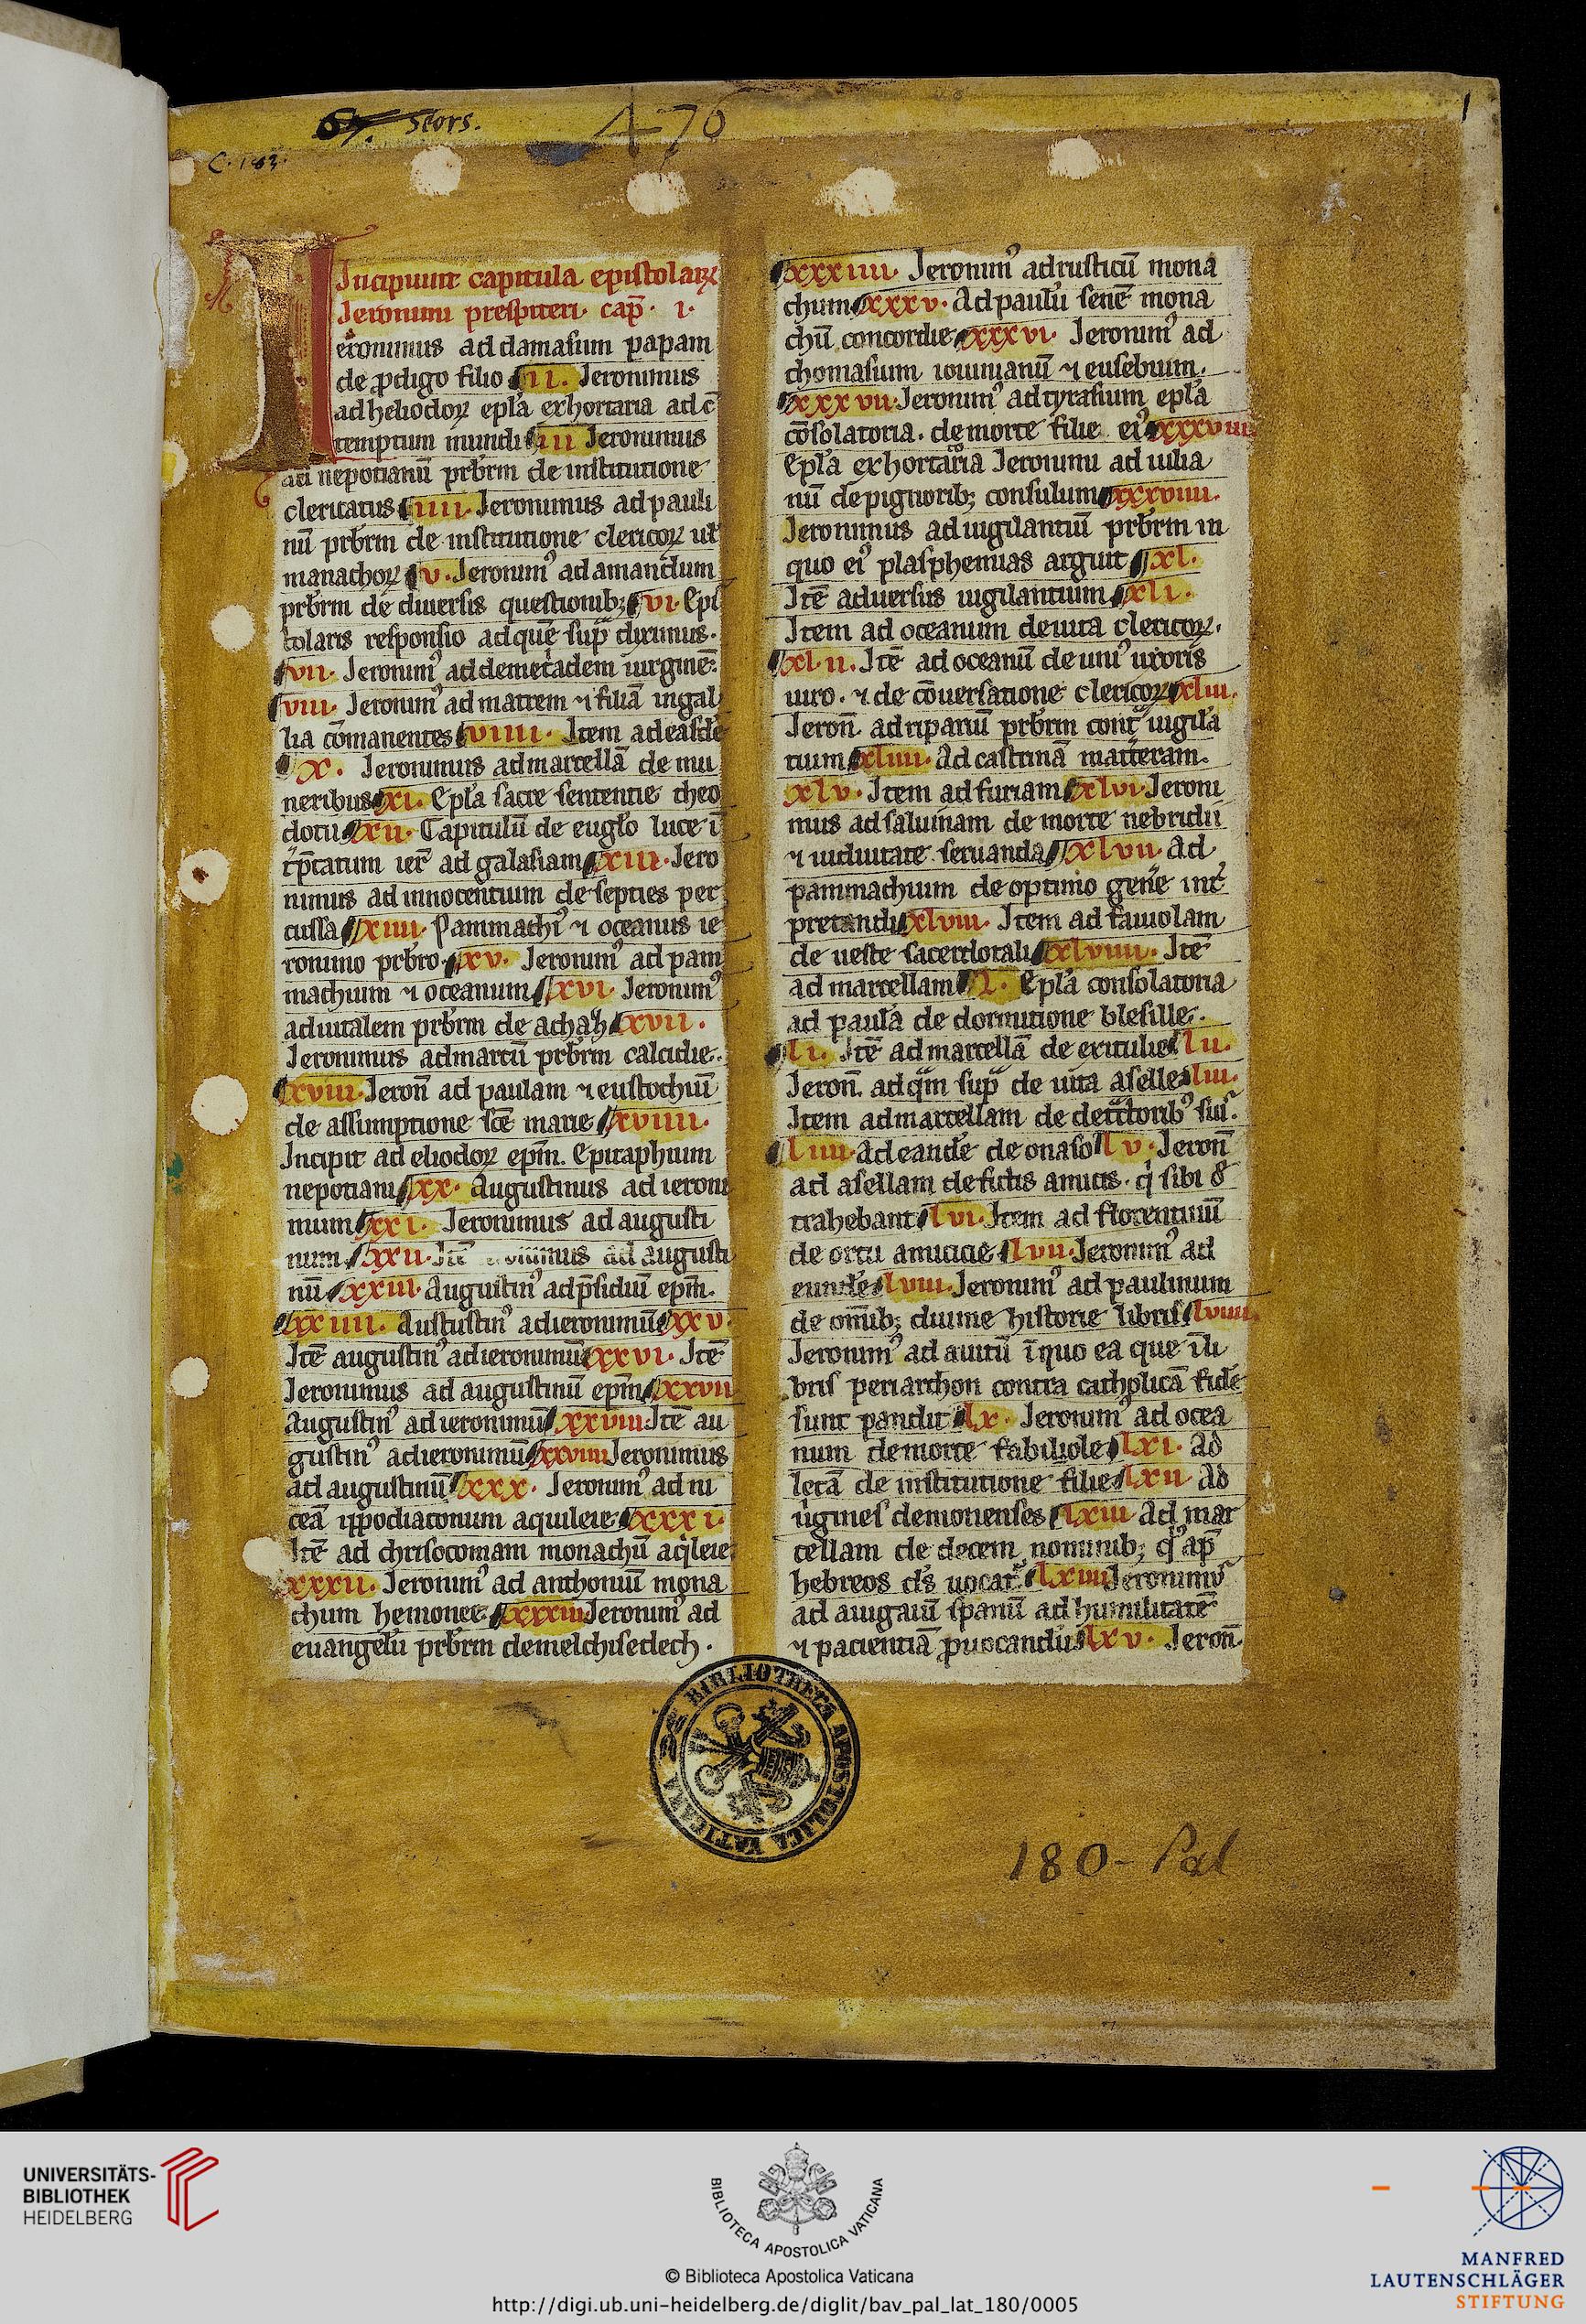 67. Seors.
476
C. 183.
1
Incipiunt capitula epistolaꝝ
Jeronimi prespiteri. cap̄. i.
Jeronimus ad damasum papam
de ꝓdigo filio ii. Jeronimus
ad heliodoꝝ epl̄a exhortaria ad cō
temptum mundi iii Jeronimus
ad nepotianū prb̄rm de institutione
clericatus iiii. Jeronimus ad pauli
nū prb̄rm de institutione clericoꝝ ul̄
manachoꝝ v. Jeronimꝰ ad amandum
prb̄rm de diuersis questionibꝫ vi. Epis
tolaris responsio ad quē supͣ diximus.
vii. Jeronimꝰ ad demetͥadem uirginē.
viii. Jeronimꝰ ad matrem ⁊ filiā in gal
lia cōmanentes viiii. Item ad easdē
x. Jeronimus ad marcellā de mu
neribus xi. Epl̄a sacre sententie theo
dotii xii. Capitulū de eugl̄o luce ī
tͥp̄tatum ier̄ ad galasiam xiii. Jero
nimus ad innocentium de septies per
cussa xiiii. Pammachiꝰ ⁊ oceanus ie
ronimo prb̄ro. xv. Jeronimꝰ ad pam
machium ⁊ oceanum xvi. Jeronimꝰ
ad uitalem prb̄rm de achaz xvii.
Jeronimus ad marcū prb̄rm calcidie.
xviii. Jeron̄ ad paulam ⁊ eustochiū
de assumptione sc̄e marie xviiii.
Incipit ad eliodoꝝ epm̄. Epitaphium
nepotiani xx. Augustinus ad ieroni
mum xxi. Jeronimus ad augusti
num xxii. Itē ad augusti
nū xxiii. Augustinꝰ ad p̄sidiū epm̄.
xxiiii. Austustinꝰ ad ieronimū xxv.
Itē augustinꝰ ad ieronimū xxvi. Itē
Jeronimus ad augustinū epm̄ xxvii
Augustinꝰ ad ieronimū xxviii. Itē au
gustinꝰ ad ieronimū xxviiii Jeronimus
ad augustinū xxx. Jeronimꝰ ad ni
ceā ypodiaconum aquileie. xxxi.
Itē ad chrisocomam monachū aqͥleie
xxxii. Jeronimꝰ ad anthoniū mona
chum hemonee. xxxiii Jeronimꝰ ad
euangelū prb̄rm de melchisedech.
xxxiiii. Jeronimꝰ ad rusticū mona
chum xxxv. Ad paulū senē mona
chū concordie xxxvi. Jeronimꝰ ad
chomasium iouinianū ⁊ eusebium.
xxxvii Jeronimꝰ ad tyrasium epl̄a
cōsolatoria. de morte filie eiꝰ xxxviii
Epl̄a exhortaͣria Jeronimi ad iulia
nū de pignoribꝫ consulum xxxviiii.
Jeronimus ad uigilantiū prb̄rm in
quo eiꝰ plasphemias arguit xl.
Itē aduersus uigilantium xli.
Item ad oceanum de uita clericoꝝ.
xlii. Itē ad oceanū de uniꝰ uxoris
uiro. ⁊ de cōuersatione clericoꝝ xliii.
Jeron̄. ad ripariū prb̄rm contͣ uigila
tium xliiii. Ad castrinā matͥteram.
xlv. Item ad furiam xlvi. Jeroni
mus ad saluinam de morte nebridii
⁊ uiduitate seruanda xlvii. Ad
pammachium de optimo geñe int̄
pretandi xlviii. Item ad fauiolam
de ueste sacerdotali xlviiii. Itē
ad marcellam L. Epl̄a consolatoria
ad paulā de dormitione blesille.
li. Itē ad marcellā de exitulie lii.
Jeron̄. ad qm̄ supͣ de uita aselle liii.
Item ad marcellam de detͣctoribꝰ suis.
liiii. Ad eandē de onaso lv. Jeron̄
ad asellam de fictis amicis. qͥ sibi det
trahebant lvi. Item ad florentinū
de ortu amicicie lvii. Jeronimꝰ ad
eundē lviii. Jeronimꝰ ad paulinum
de omībꝫ diuine historie libris lviiii.
Jeronimꝰ ad auitū ī quo ea que ī li
bris periarchon contra catholicā fidē
sunt pandit lx. Jeronimꝰ ad ocea
num de morte fabiliole lxi. Ad
letā de institutione filie lxii Ad
uͥgines demonenses lxiii. Ad mar
cellam de decem nominibꝫ qͥbꝰ ap̄
hebreos ds̄ uocatͬ lxiiii Jeronimꝰ
ad auigaiū spanū ad humilitatē
⁊ pacientiā ꝓuocandū lxv. Jeron̄.
BIBLIOTHECA APOSTOLICA VATICANA
180 - Pal
UNIVERSITÄTS-
BIBLIOTHEK
HEIDELBERG
BIBLIOTECA APOSTOLICA VATICANA
© Biblioteca Apostolica Vaticana
http://digi.ub.uni-heidelberg.de/diglit/bav_pal_lat_180/0005
MANFRED
LAUTENSCHLÄGER
STIFTUNG